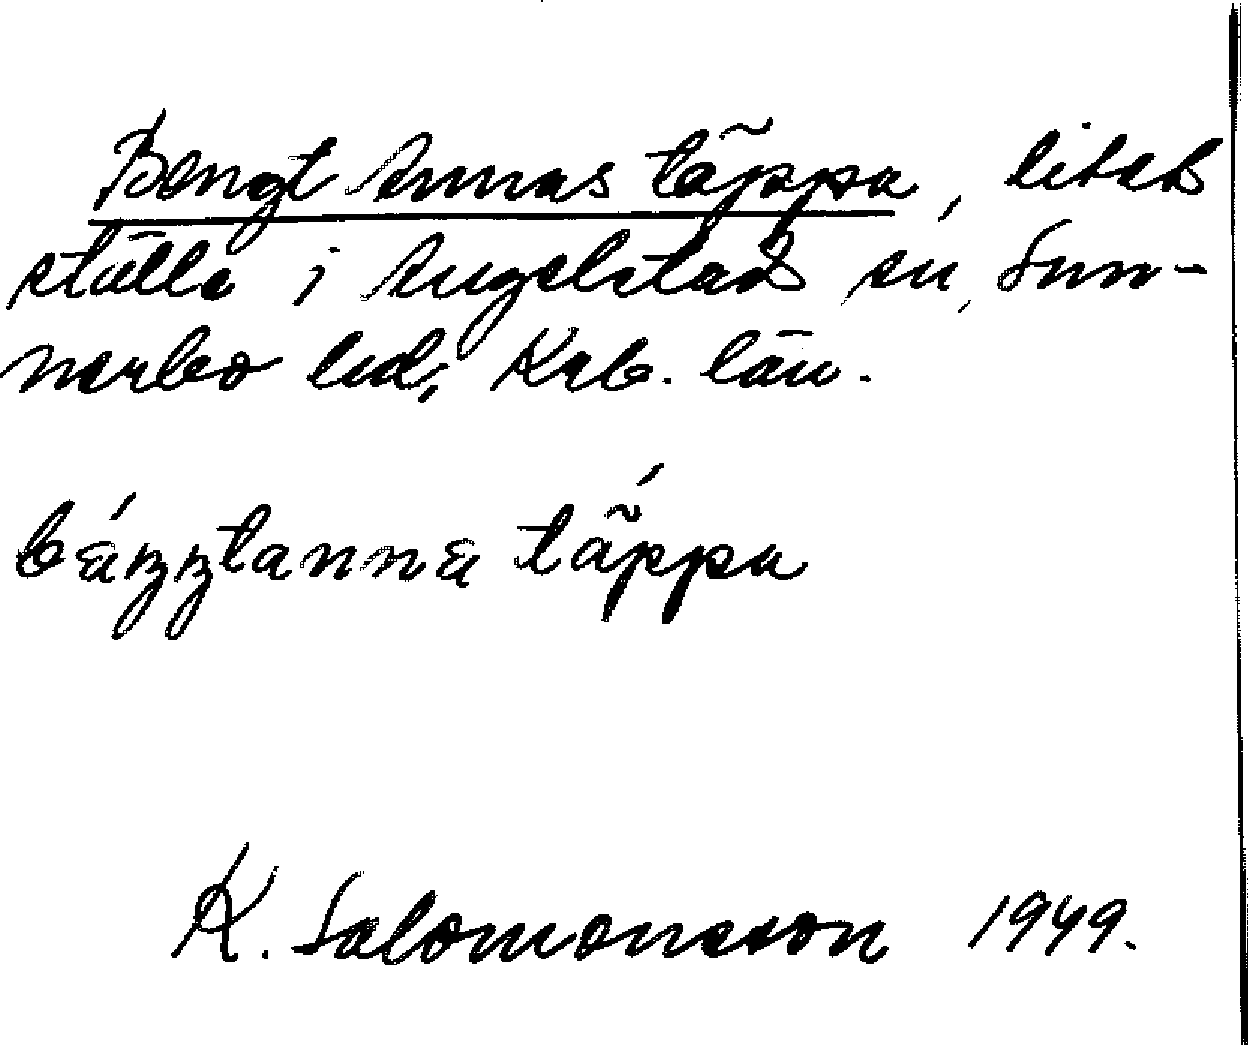 Bengt Annas täppa, litet
ställe i Angelstad sn, Sun-
nerbo hd, Krb. län.
bæŋŋtannɑ täppa
K. Salomonsson 1949.